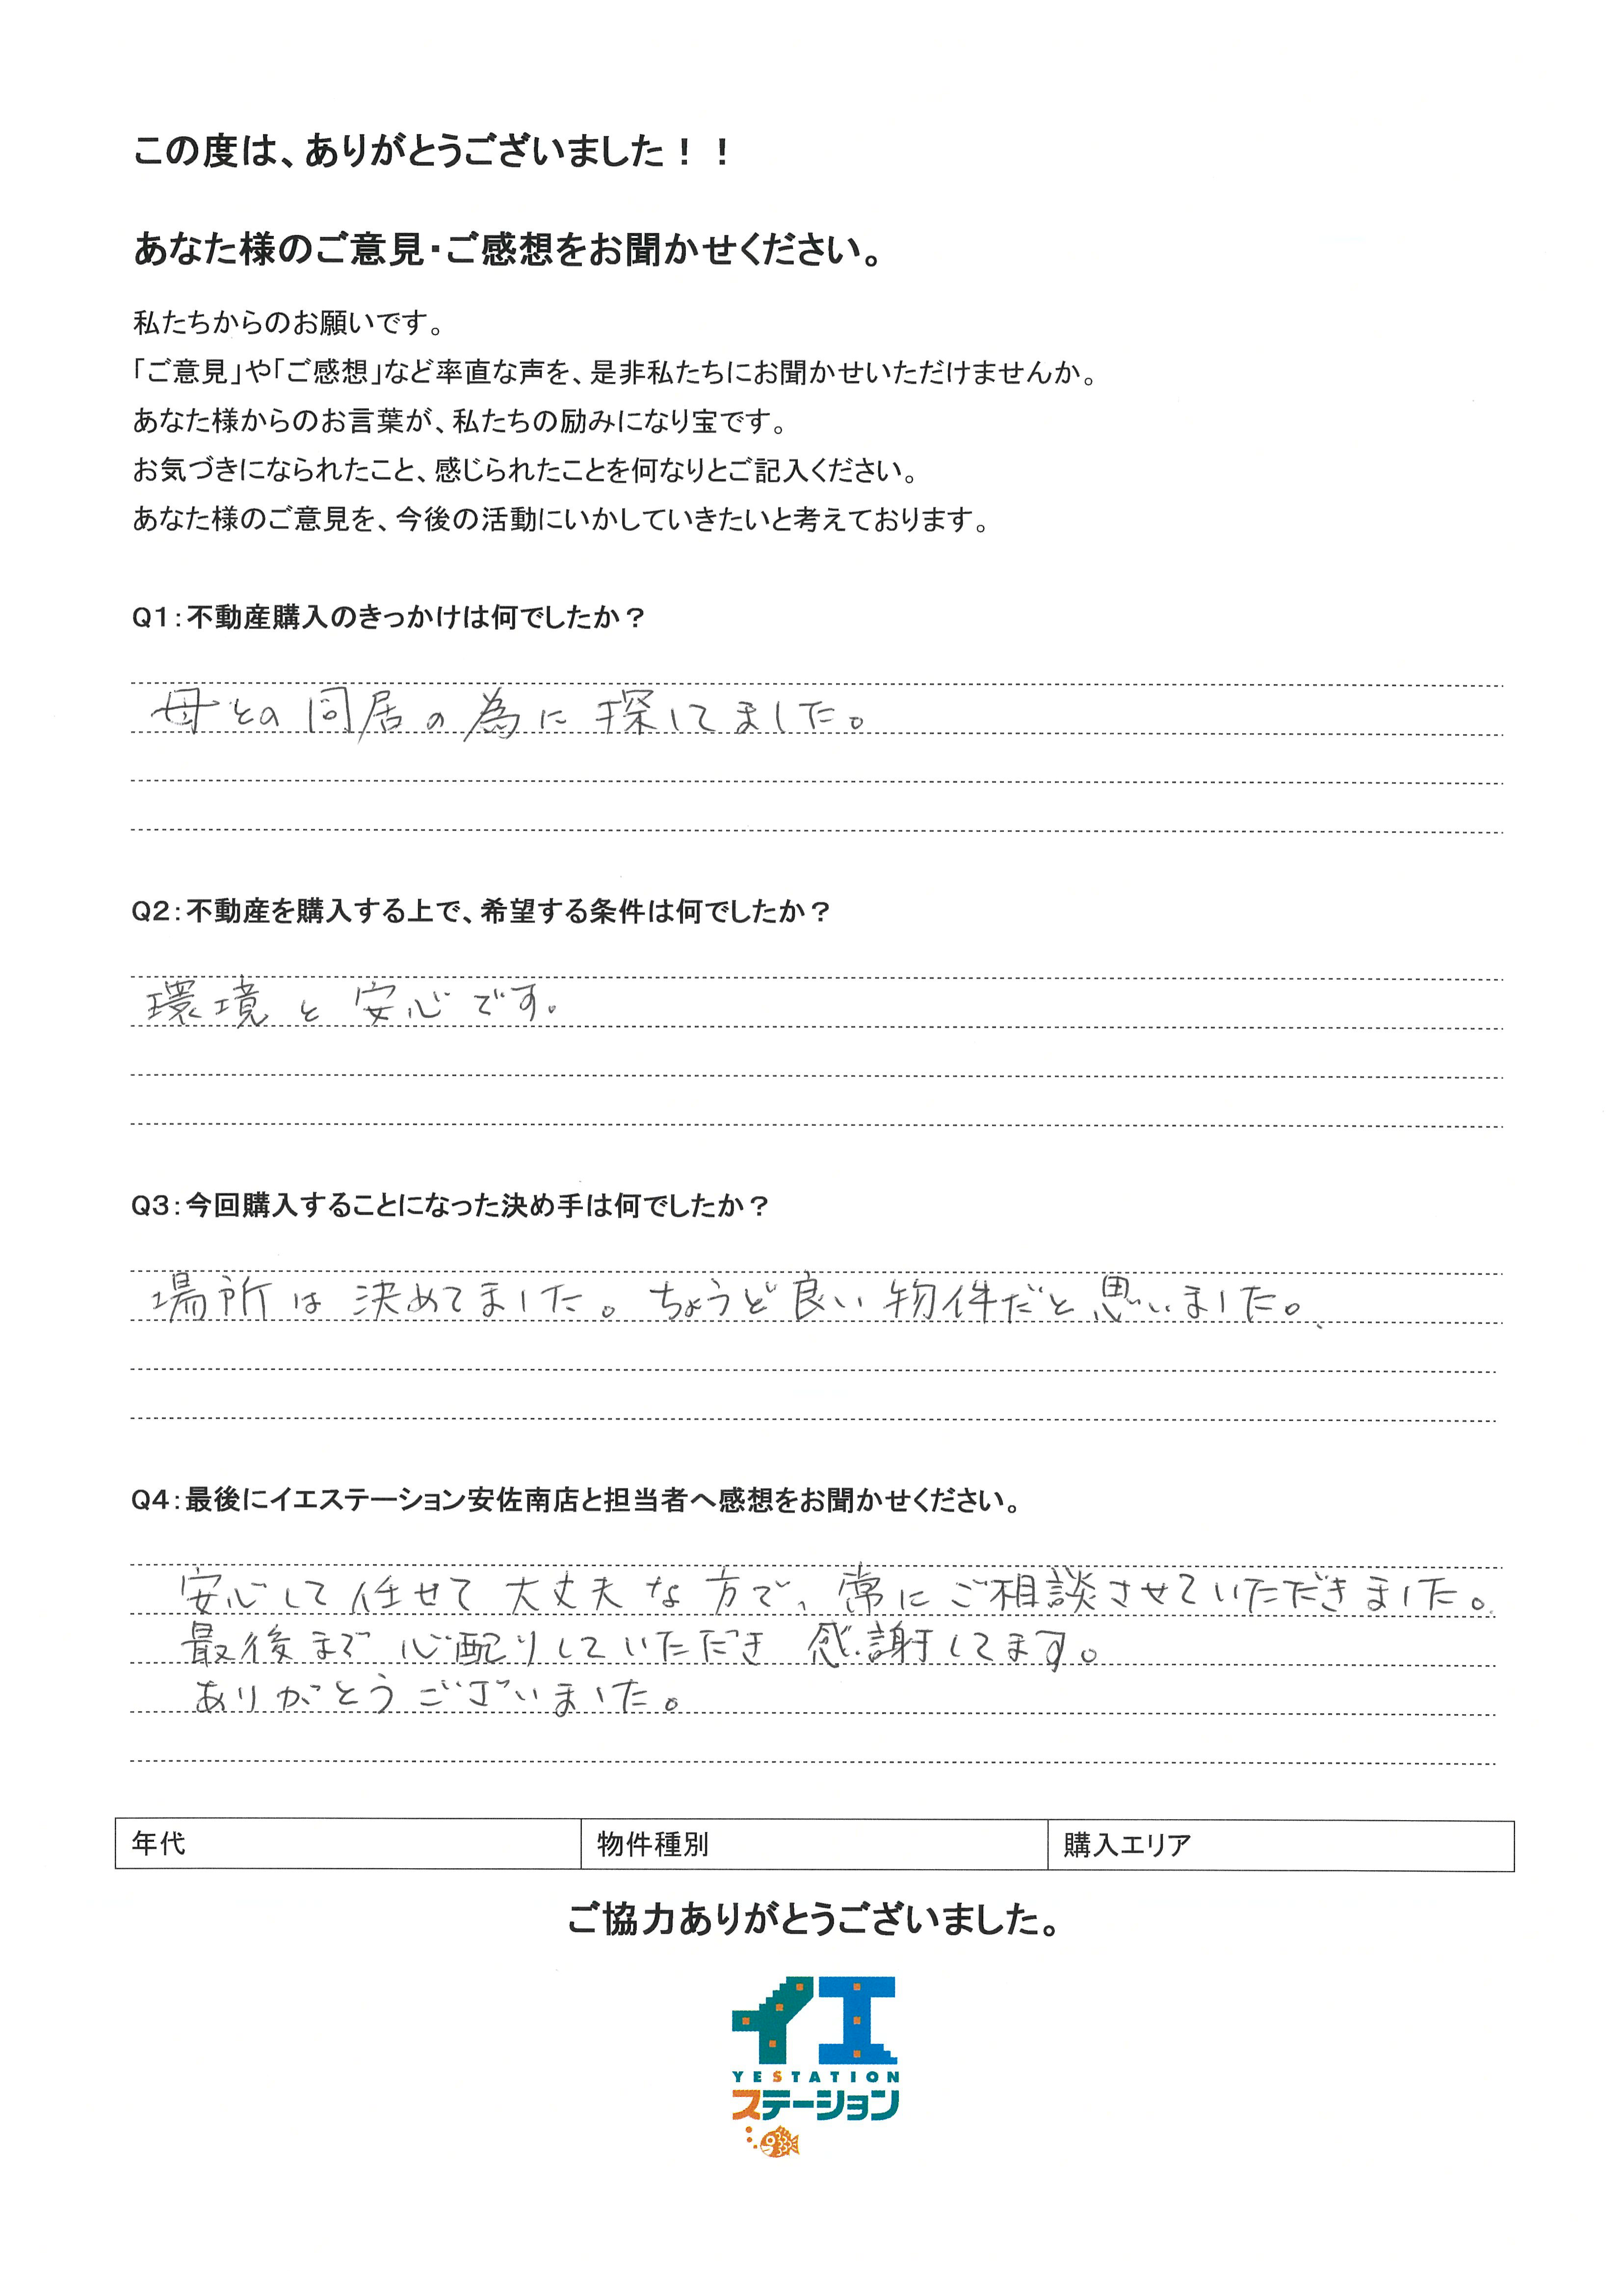 この度は、ありがとうございました！！
あなた様のご意見・ご感想をお聞かせください。
私たちからのお願いです。
「ご意見」や「ご感想」など率直な声を、是非私たちにお聞かせいただけませんか。
あなた様からのお言葉が、私たちの励みになり宝です。
お気づきになられたこと、感じられたことを何なりとご記入ください。
あなた様のご意見を、今後の活動にいかしていきたいと考えております。
Q1：不動産購入のきっかけは何でしたか？
母との同居の為に探してました。
Q2：不動産を購入する上で、希望する条件は何でしたか？
環境と安心です。
Q3：今回購入することになった決め手は何でしたか？
場所は決めてました。ちょうど良い物件だと思いました。
Q4：最後にイエステーション安佐南店と担当者へ感想をお聞かせください。
安心して任せて大丈夫な方で、常にご相談させていただきました。
最後まで心配りしていただき感謝してます。
ありがとうございました。
年代 物件種別 購入エリア
ご協力ありがとうございました。
イエ
YESTATION
ステーション